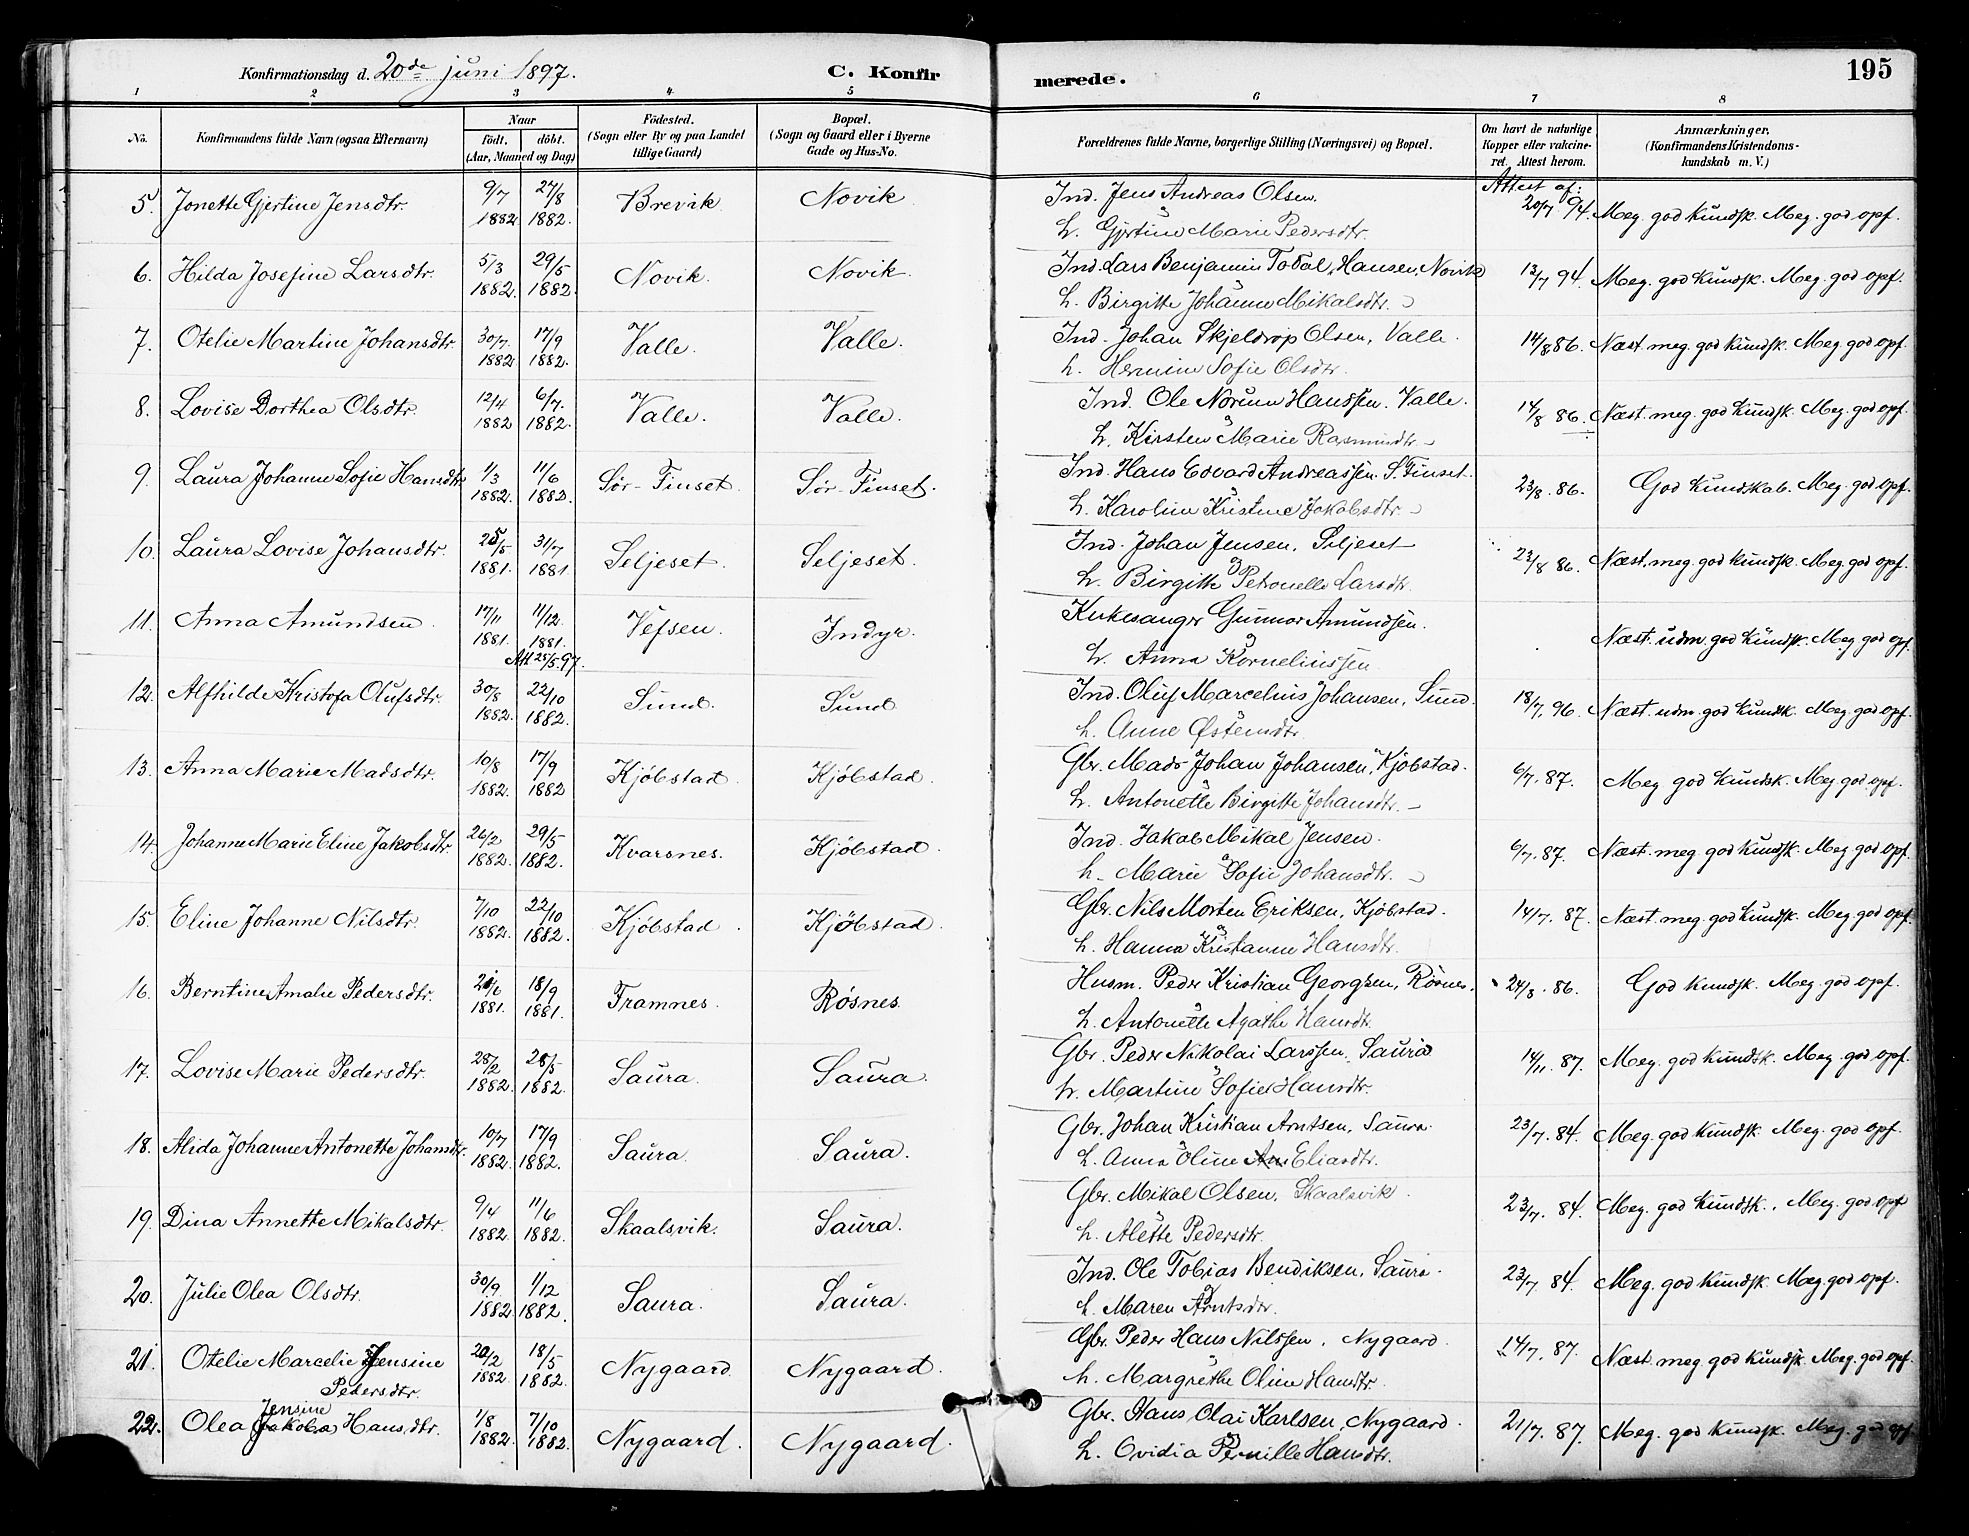 195
Konfirmationsdag d. 20de juni 1897. C. Konfirmerede.
1 2 3 4 5 6 7 8
No. Konfirmandens fulde Navn (ogsaa Efternavn) Naar født, døbt. (Aar, Maaned og Dag) Fødested. (Sogn eller By og paa Landet tillige Gaard) Bopæl. (Sogn og Gaard eller i Byerne Gade og Hus-No. Forældrenes fulde Navne, borgerlige Stilling (Næringsvei) og Bopæl. Om havt de naturlige Kopper eller vakcineret. Attest herom. Anmærkninger, (Konfirmandens Kristendomskundskab m. V.)
5. Jonette Gjertine Jensdtr. 9/7 1882 27/8 1882. Brevik Novik Ind. Jens Andreas Olsen. Attest af: 20/7 94. Meg. god kundsk. Meg. god opf.
h. Gjertine Marie Pedersdtr.
6. Hilda Josefine Larsdtr. 5/3 1882. 29/5 1882. Novik. Novik. Ind. Lars Benjamin Hansen, Novik 13/7 94. Meg. god kundsk. Meg. god opf.
h. Birgitte Johanne Mikalsdtr.
7. Otelie Martine Johansdtr. 30/7. 1882 17/9 1882. Valle. Valle. Ind. Johan Skjeldrop Olsen, Valle. 14/8 86. Næst. meg. god kundsk. Meg. god opf.
h. Hermine Sofie Olsdtr.
8. Lovise Dorthea Olsdtr. 12/4 1882 6/7. 1882. Valle. Valle. Ind. Ole Norum Hanssen. Valle. 14/8 86. Næst. meg. god kundsk. Meg. god opf.
h. Kirsten Marie Rasmusdtr.
9. Laura Johanne Sofie Hansdtr. 1/3 1882. 11/6 1882. Sør-Finset. Sør-Finset. Ind. Hans Edvard Andreassen. S. Finset. 23/8. 86. God kundskab. Meg. god opf.
h. Karoline Kristine Jakobsdtr.
10. Laura Lovise Johansdtr. 25/5 1881. 31/7 1881 Seljeset. Seljeset. Ind. Johan Jensen. Seljeset 23/8 86. Næst. meg. god kundsk. Meg. god opf.
h. Birgitte Petronelle Larsdtr.
11. Anna Amundsen 17/11 1881. 11/12. 1881. Att 25/5.97. Vefsen. Indyr. Kirkesanger Gunnar Amundsen. Næst. udm. god kundsk. Meg. god opf.
h. Anna Kornelinssen
12. Alfhilde Kristofa Olufsdtr. 30/8 1882. 22/10 1882. Sund. Sund Ind. Oluf Marcelius Johansen, Sund. 18/7. 96. Næst. udm. god kundsk. Meg. god opf.
h. Anne Østensdtr.
13. Anna Marie Madsdtr. 10/8 1882. 17/9 1882 Kjöbstad. Kjöbstad. Gbr. Mads Johan Johansen, Kjöbstad. 6/7. 87. Meg god kundsk. Meg god opf.
h. Antonette Birgitte Johansdtr.
14. Johanne Marie Eline Jakobsdtr. 26/2 1882. 29/5 1882. Kvarsnes. Kjöbstad. Ind. Jakob Mikal Jensen. 6/7. 87. Næst. meg. god kundsk. Meg god opf.
h. Marie Sofie Johansdtr.
15. Eline Johanne Nilsdtr. 7/10 1882. 22/10 1882. Kjöbstad. Kjöbstad. Gbr. Nils Morten Eriksen, Kjöbstad. 14/7. 87. Næst. meg. god kundsk. Meg. god opf.
h. Hanna Kristanne Hansdtr.
16. Berntine Amalie Pedersdtr. 21/6 1881. 18/9 1881. Framnes. Røsnes. Husm. Peder Kristian Georgsen, Røsnes. 24/8. 86. God kundsk. Meg. god opf.
h. Antonette Agathe Hansdtr.
17. Lovise Marie Pedersdtr. 28/2 1882. 28/5 1882. Saura. Saura. Gbr. Peder Nikolai Larssen, Saura 14/11. 87. Meg. god kundsk. Meg. god opf.
h. Martine Sofie Hansdtr.
18. Alida Johanne Antonette Johansdtr. 10/7 1882. 17/9 1882. Saura. Saura. Gbr. Johan Kristian Arntsen, Saura. 23/7. 84. Meg. god kundsk. Meg. god opf.
h. Anna Oline Eliasdtr.
19. Dina Annette Mikalsdtr. 9/4 1882. 11/6 1882. Skaalsvik. Saura. Gbr. Mikal Olsen, Skaalsvik. 23/7. 84. Meg. god kundsk. Meg. god opf
h. Alette Pedersdtr.
20. Julie Olea Olsdtr. 30/9 1882. 1/12 1882. Saura. Saura. Ind. Ole Tobias Bendiksen, Saura. 23/7. 84. Meg. god kundsk. Meg. god opf.
h. Maren Arntsdtr.
21. Otelie Marcelie Jensine Pedersdtr. 20/2 1882. 18/5 1882. Nygaard. Nygaard. Gbr. Peder Hans Nilssen, Nygaard. 14/7. 87. Næst. meg. god kundsk. Meg. god opf.
h. Margrethe Oline Hansdtr.
22. Olea Jensine Jakoba Hansdtr. 1/8 1882. 7/10 1882. Nygaard. Nygaard. Gbr. Hans Olai Karlsen, Nygaard. 21/7. 87. Meg. god kundsk. Meg. god opf.
h. Ovidia Pernille Hansdtr.